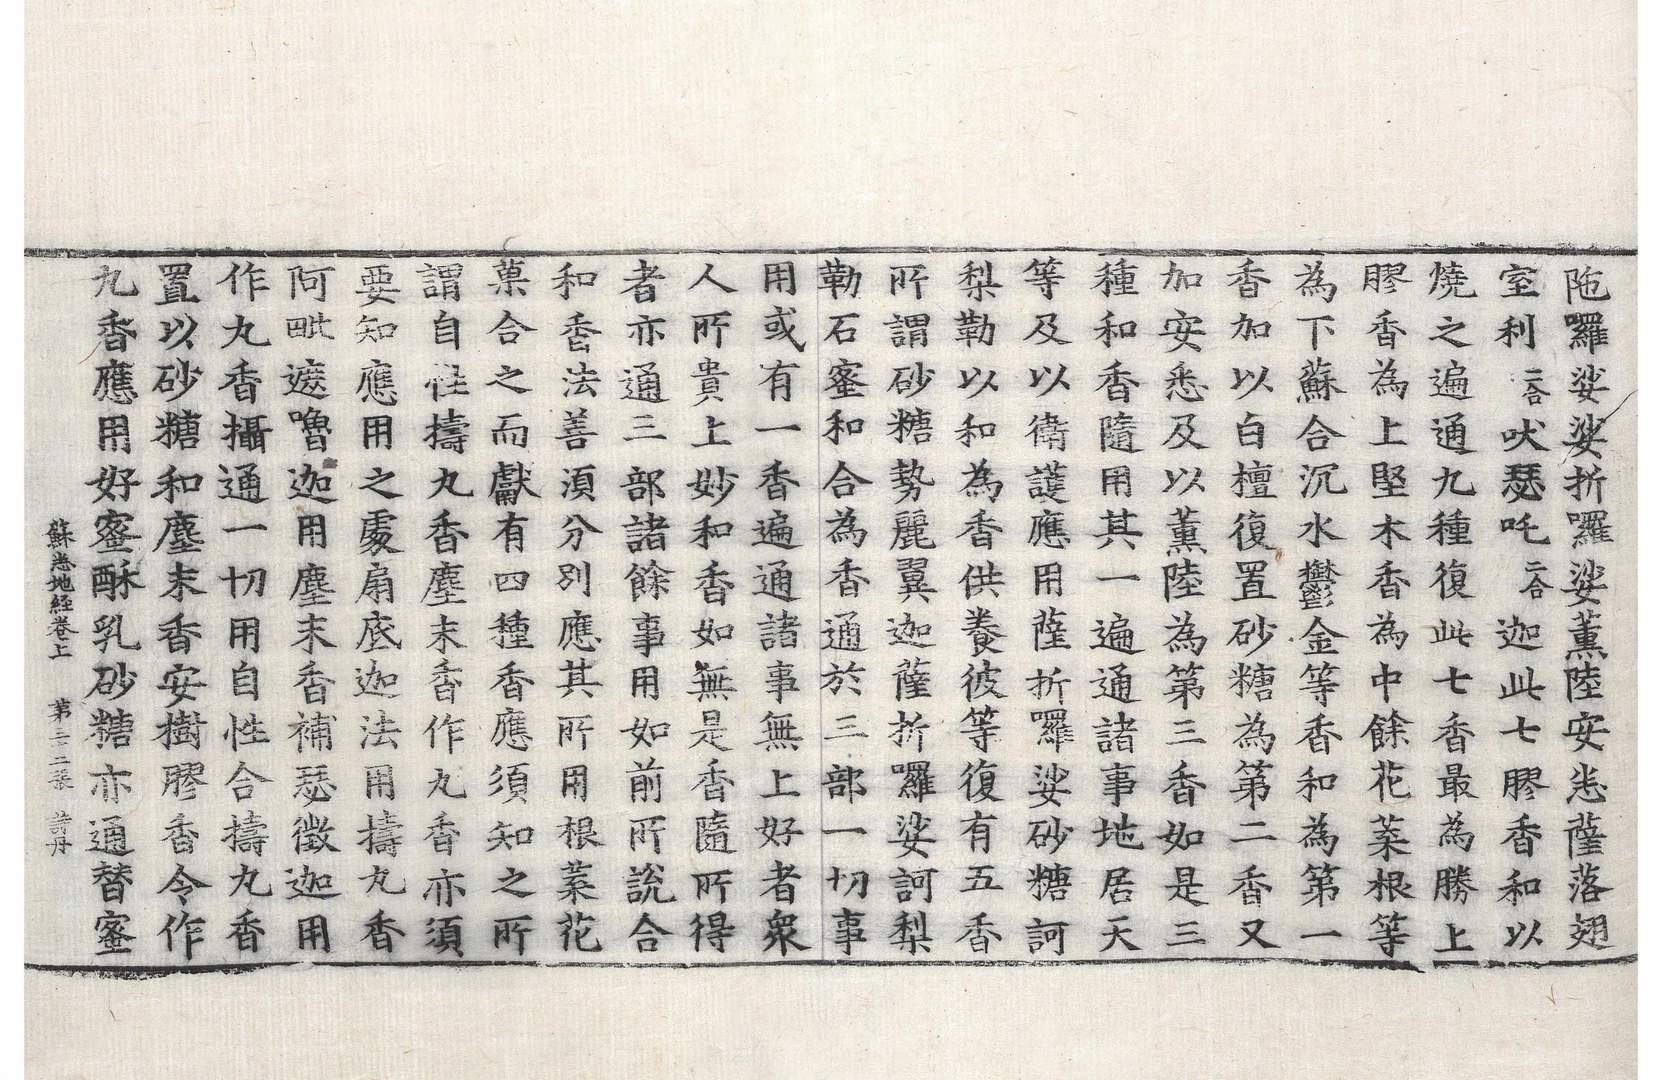 陁囉娑娑折囉娑薰陸安悉薩落翅
室利二合吠瑟吒二合迦此七膠香和以
燒之遍通九種復此七香最為勝上
膠香為上堅木香為中餘花葉根等
為下蘇合沉水欝金等香和為第一
香加以白檀復置砂糖為第二香又
加安悉及以薰陸為第三香如是三
種和香隨用其一遍通諸事地居天
等及以衛護應用薩折囉娑砂糖訶
梨勒以和為香供養彼等復有五香
所謂砂糖勢麗翼迦薩折囉娑訶梨
勒石蜜和合為香通於三部一切事
用或有一香遍通諸事無上好者衆
人所貴上妙和香如無是香隨所得
者亦通三部諸餘事用如前所說合
和香法善須分別應其所用根葉花
菓合之而獻有四種香應須知之所
謂自性擣丸香塵末香作丸香亦須
要知應用之處扇底迦法用擣丸香
阿毗遮嚕迦用塵末香補瑟徵迦用
作丸香攝通一切用自性合擣丸香
置以砂糖和塵末香安樹膠香令作
丸香應用好蜜酥乳砂糖亦通替蜜
蘇悉地経卷上 第三十二張 芿丹